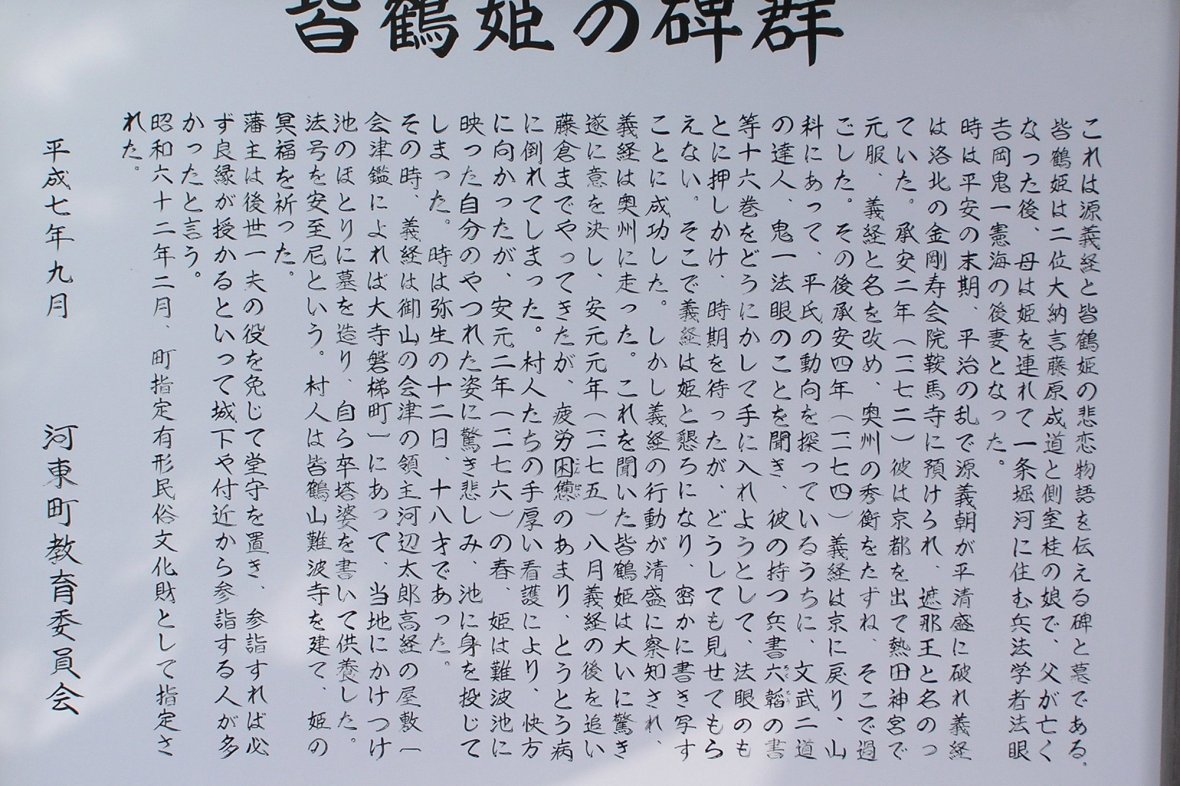 皆鶴姫の碑群
これは源義経と皆鶴姫の悲恋物語を伝える碑と墓である。
皆鶴姫は二位大納言藤原成道と側室桂の娘で、父が亡く
なった後、母は姫を連れて一条堀河に住む兵法学者法眼
吉岡鬼一憲海の後妻となった。
時は平安の末期、平治の乱で源義朝が平清盛に破れ義経
は洛北の金剛寿会院鞍馬寺に預けられ、遮那王と名のっ
ていた。承安二年(一一七二)彼は京都を出て熱田神宮で
元服、義経と名を改め、奥州の秀衡をたずね、そこで過
ごした。その後承安四年(一一七四)義経は京に戻り、山
科にあって、平氏の動向を探っているうちに、文武二道
の達人、鬼一法眼のことを聞き、彼の持つ兵書六韜の書
等十六巻をどうにかして手に入れようとして、法眼のも
とに押しかけ、時期を待ったが、どうしても見せてもら
えない。そこで義経は姫と懇ろになり、密かに書き写す
ことに成功した。しかし義経の行動が清盛に察知され、
義経は奥州に走った。これを聞いた皆鶴姫は大いに驚き
遂に意を決し、安元元年(一一七五)八月義経の後を追い
藤倉までやってきたが、疲労困憊のあまり、とうとう病
に倒れてしまった。村人たちの手厚い看護により、快方
に向かったが、安元二年(一一七六)の春、姫は難波池に
映った自分のやつれた姿に驚き悲しみ、池に身を投じて
しまった。時は弥生の十二日、十八才であった。
その時、義経は御山の会津の領主河辺太郎高経の屋敷〔
会津鑑によれば大寺磐梯町〕にあって、当地にかけつけ
池のほとりに墓を造り、自ら卒塔婆を書いて供養した。
法号を安至尼という。村人は皆鶴山難波寺を建て、姫の
冥福を祈った。
藩主は後世一夫の役を免じて堂守を置き、参詣すれば必
ず良縁が授かるといって城下や付近から参詣する人が多
かったと言う。
昭和六十二年二月、町指定有形民俗文化財として指定さ
れた。
平成七年九月　河東町教育委員会